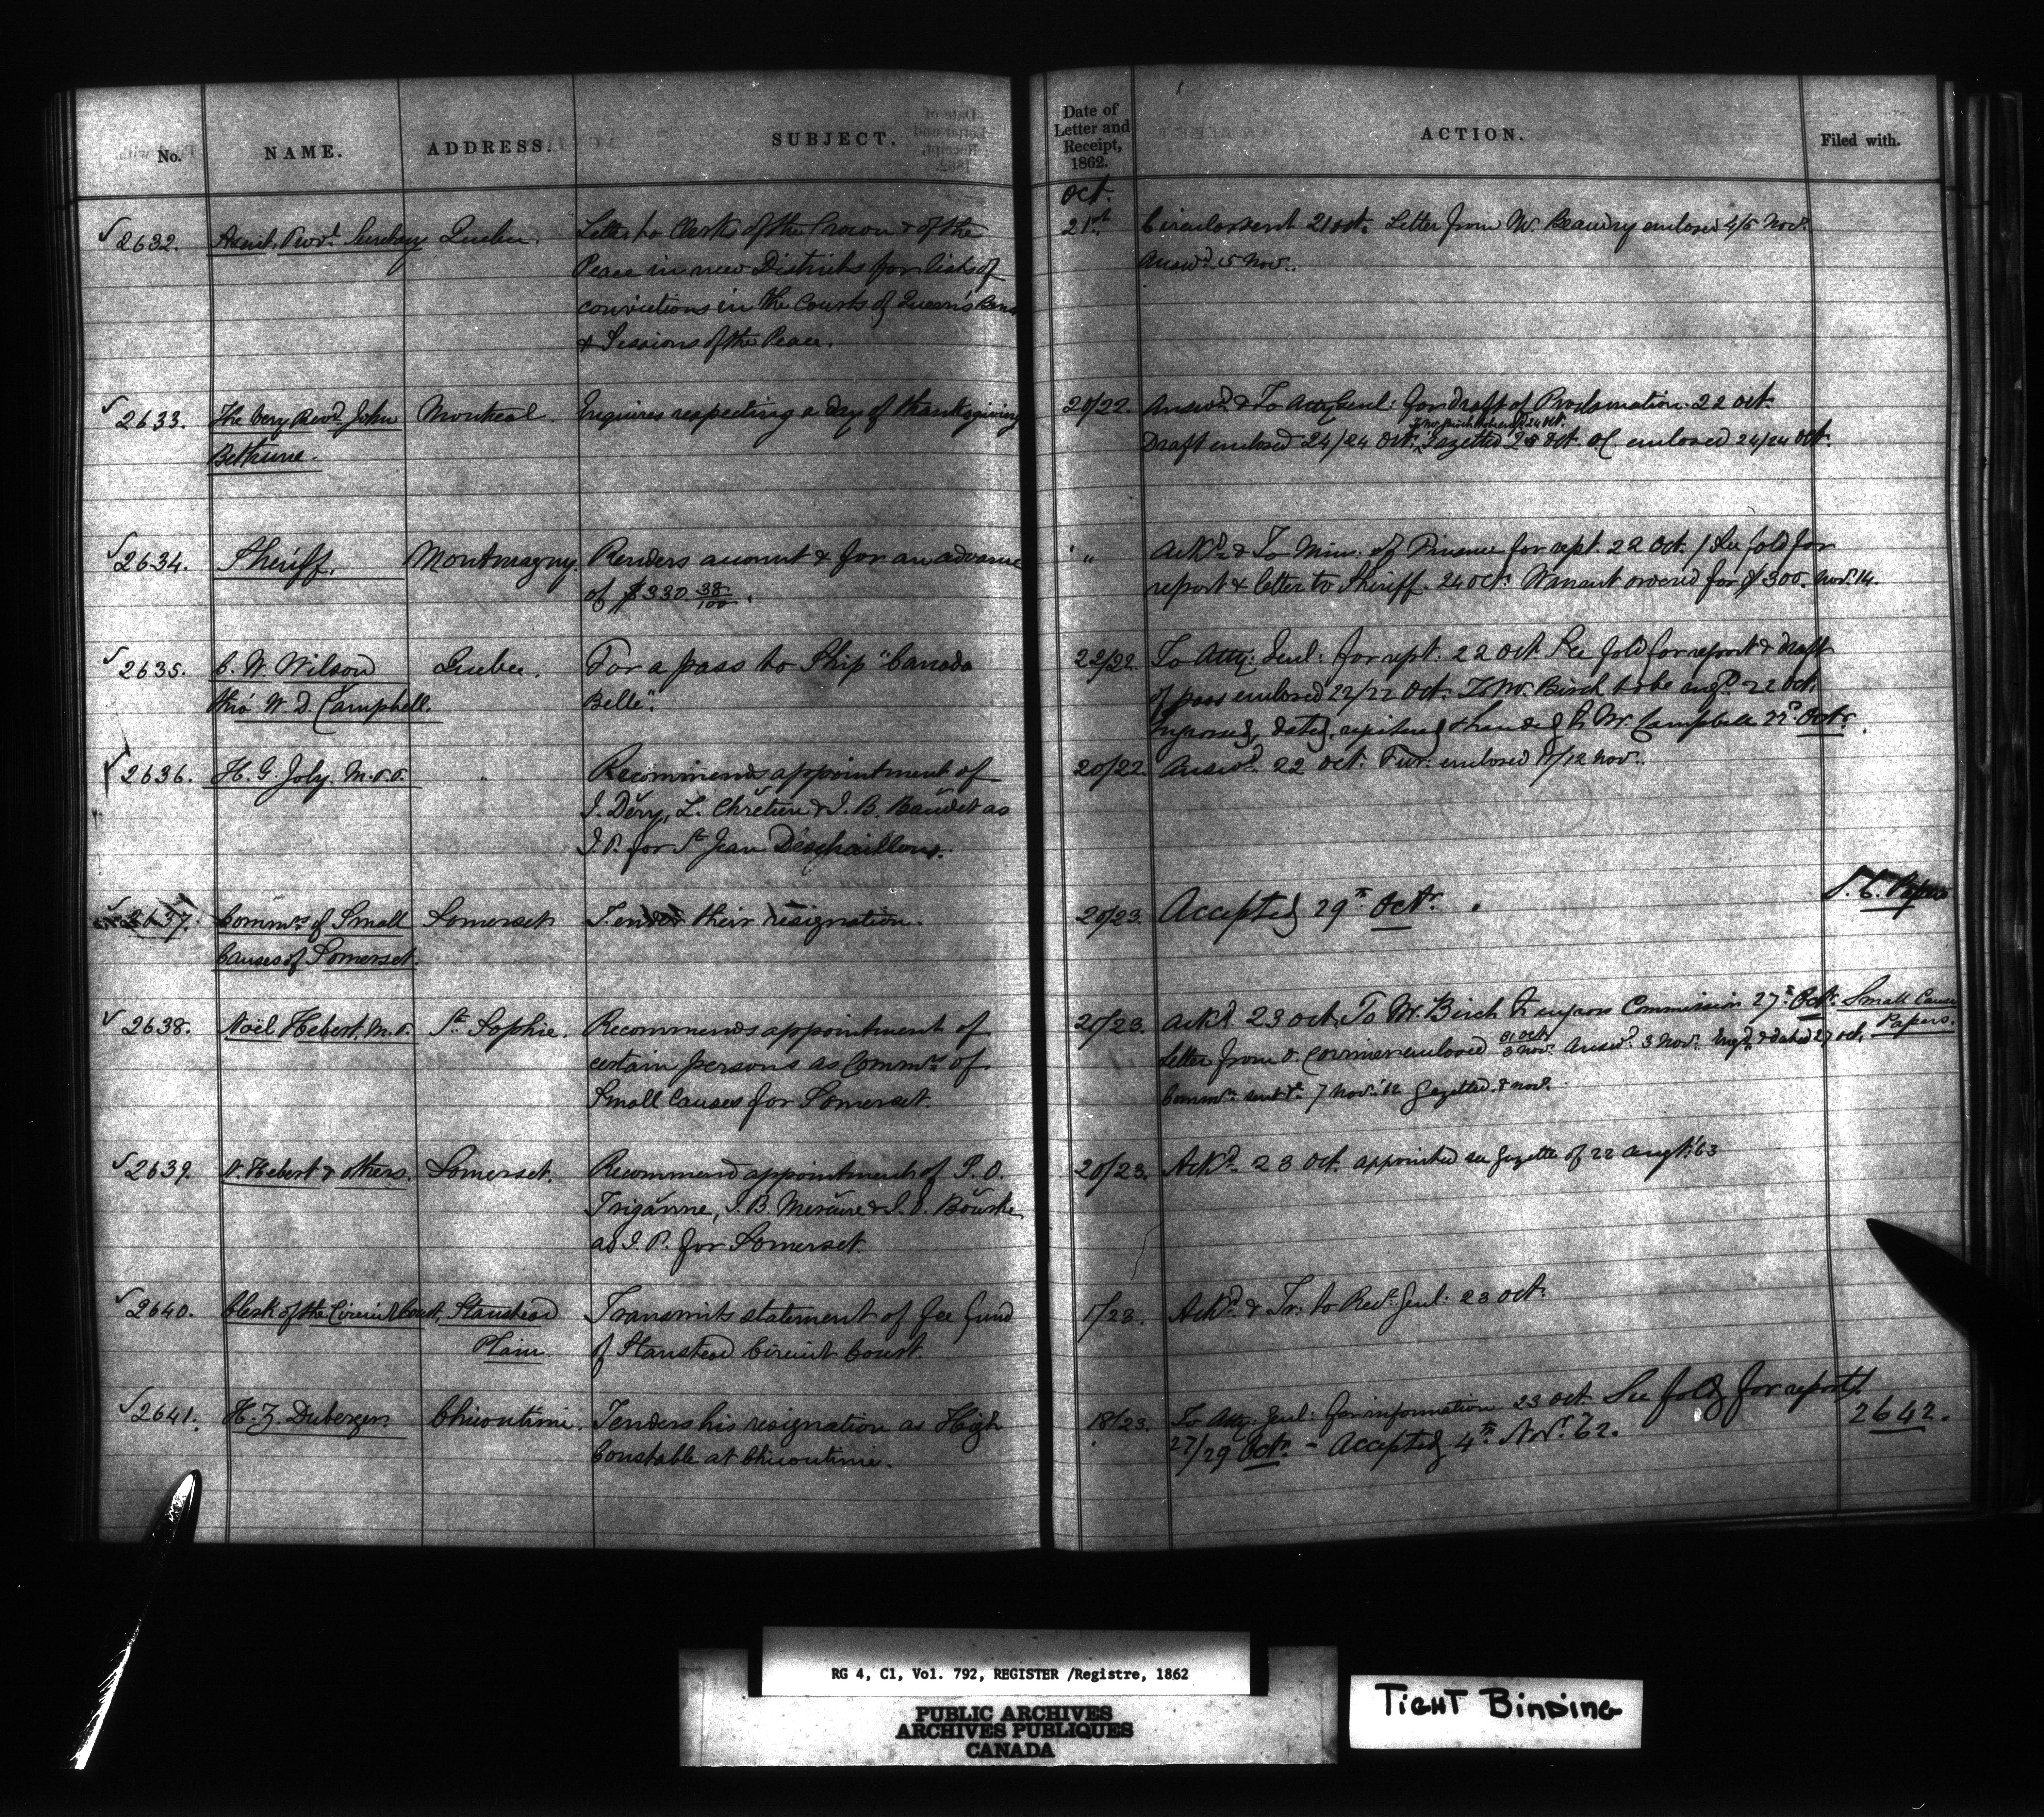 No. NAME. ADDRESS. SUBJECT. Date of Letter and Receipt, 1862. ACTION. Filed with.
Oct.
2632. Assist. Provl. Secretary Quebec. Letter to Clerks of the Crown & of the 21st Circulars sent 21 Oct. Letter from Mr. Beaudry enclosed 4/5 Nov.
Peace in new Districts for lists of Answd. 5 Nov.
convictions in the Courts of Queen's Bench
& Sessions of the Peace.
2633. The Very Revd. John Montreal Inquires respecting a day of thanksgiving 20/22. Answd. & To Atty Genl: for draft of Proclamation. 22 Oct.
Bethune. Draft enclosed 24/24 Oct. Gazetted 25 Oct. OC enclosed 24/24 Oct.
2634. Sheriff. Montmagny. Renders account & for an advance " Ackd. & To Min: of Finance for rept. 22 Oct. / See fold for
of $330 38/100. report & letter to Sheriff. 24 Oct. Warrant ordered for $300. Nov. 14.
2635. C. W. Wilson Quebec. For a pass to Ship "Canada 22/22. To Atty: Genl: for rept: 22 Oct See fold for report & draft
thro' W. D. Campbell. Belle". of pass enclosed 22/22 Oct. To Mr. Birch to be engd. 22 Oct.
Engrossed, dated, registered & handed to Mr. Campbell 22d. Octr.
2636. H. G. Joly, M.P.P. " Recommends appointment of 20/22. Answd. 22 Oct. Fur: enclosed 11/12 Nov.
J. Déry, L. Chrétien & J. B. Baudet as
J.P. for St. Jean Deschaillons.
2637. Commrs. of Small Somerset Tender their resignation. 20/23. Accepted 29th Octr. S. C. Papers
Causes of Somerset.
2638. Noël Hebert, M.P. St. Sophie. Recommends appointment of 20/23. Ackd. 23 Oct. To Mr. Birch to engross Commission 27th Octr. Small Cause
certain persons as Commrs. of Letter from enclosed 31 Oct/3 Nov. Answd. 3 Nov. Engd. & dated 27 Oct. Papers.
Small Causes for Somerset. Commn. sent 7 Nov. '62 Gazetted 8 Nov.
2639. N. Hebert & others. Somerset. Recommend appointment of P. O. 20/23. Ackd. 23 Oct. appointed see Gazette of 22 Augt. '63
Triganne, J. B. Mercure & J. P. Bourke
as J.P. for Somerset.
2640. Clerk of the Circuit Court, Stanstead Transmits statement of fee fund 1/23. Ackd. & Tr: to Recr. Genl: 23 Oct.
Plain of Stanstead Circuit Court.
2641. H. Z. Duberger. Chicoutimi. Tenders his resignation as High 18/23. To Atty. Genl: for information 23 Oct. See fold for report 2642.
Constable at Chicoutimi. 27/29 Octr. – Accepted 4th Novr. 62.
RG 4, C1, Vol. 792, REGISTER /Registre, 1862
PUBLIC ARCHIVES
ARCHIVES PUBLIQUES
CANADA
TIGHT BINDING